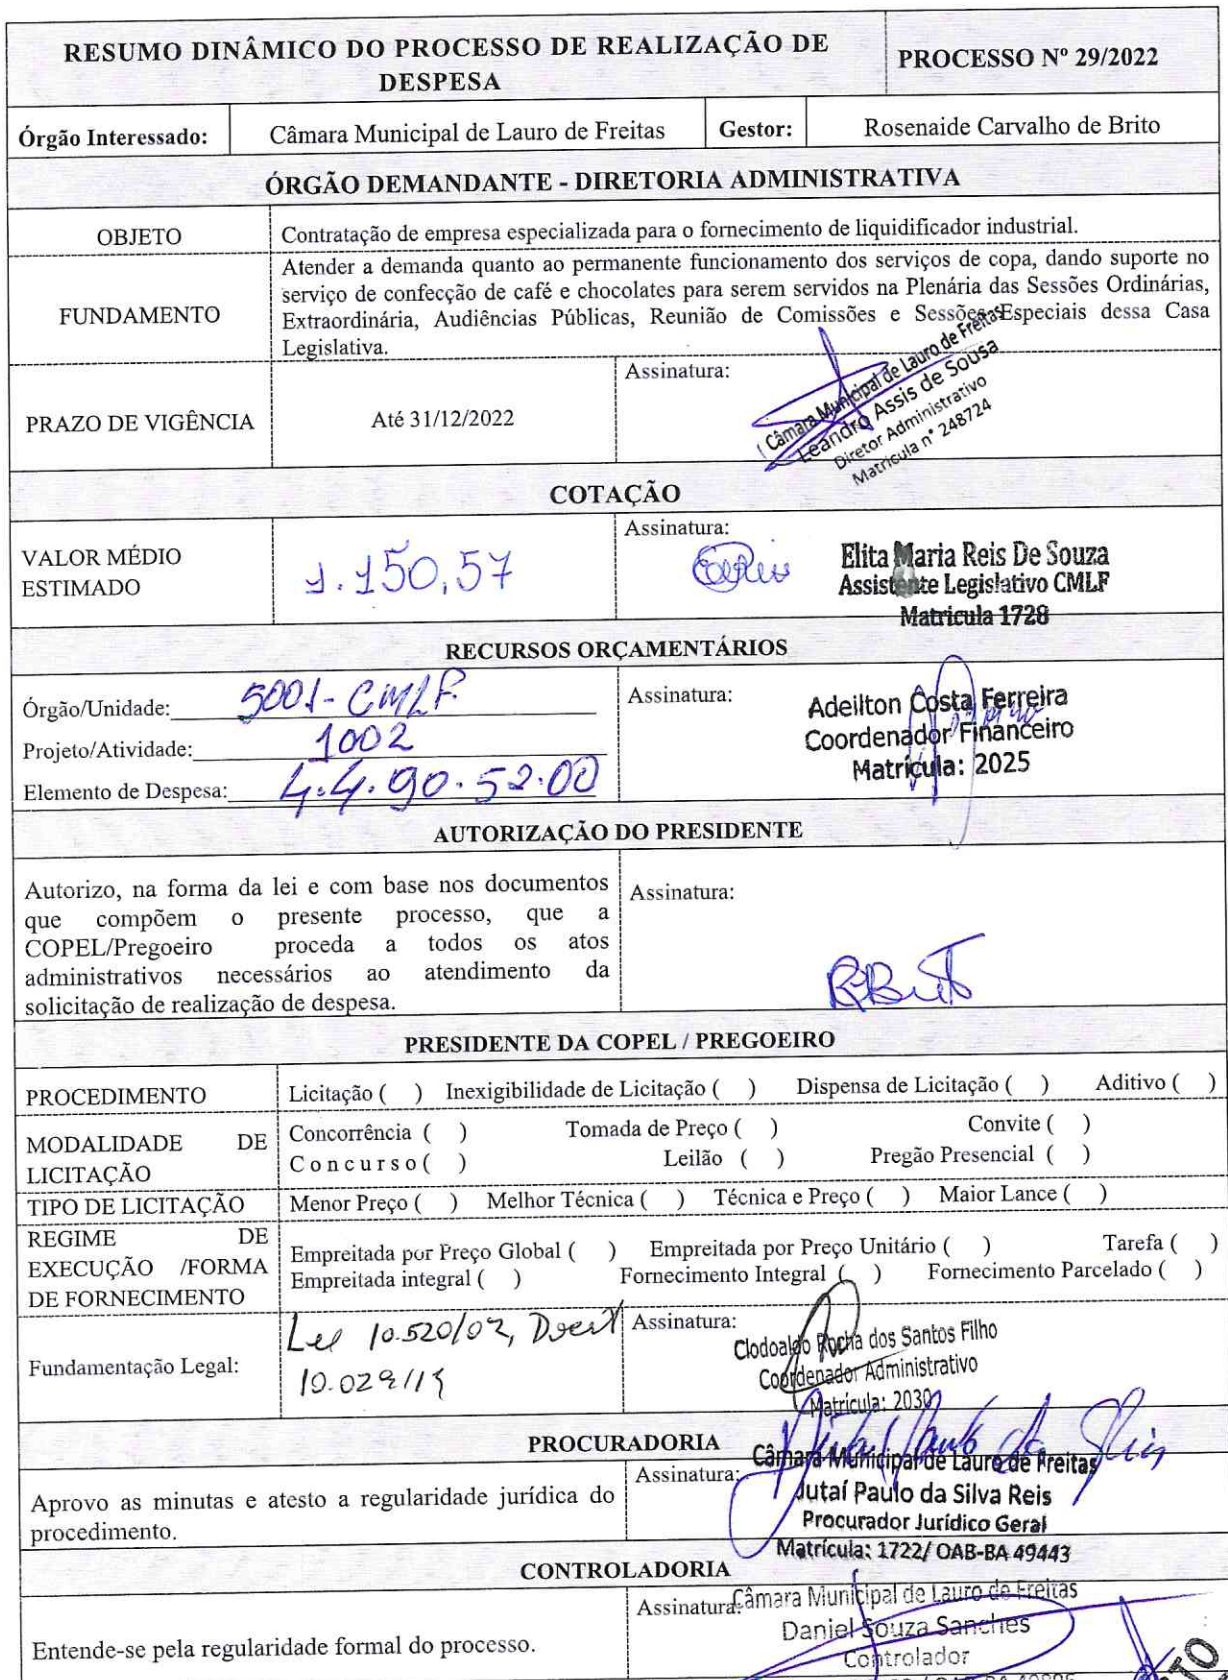 RESUMO DINÂMICO DO PROCESSO DE REALIZAÇÃO DE
DESPESA
PROCESSO Nº 29/2022
Órgão Interessado:
Câmara Municipal de Lauro de Freitas
Gestor:
Rosenaide Carvalho de Brito
ÓRGÃO DEMANDANTE - DIRETORIA ADMINISTRATIVA
OBJETO
Contratação de empresa especializada para o fornecimento de liquidificador industrial.
FUNDAMENTO
Atender a demanda quanto ao permanente funcionamento dos serviços de copa, dando suporte no
serviço de confecção de café e chocolates para serem servidos na Plenária das Sessões Ordinárias,
Extraordinária, Audiências Públicas, Reunião de Comissões e Sessões Especiais dessa Casa
Legislativa.
PRAZO DE VIGÊNCIA
Até 31/12/2022
Assinatura:
Câmara Municipal de Lauro de Freitas
Leandro Assis de Sousa
Diretor Administrativo
Matricula n° 248724
COTAÇÃO
VALOR MÉDIO
ESTIMADO
1.150,57
Assinatura:
Elita Maria Reis De Souza
Assistente Legislativo CMLF
Matricula 1728
RECURSOS ORÇAMENTÁRIOS
Órgão/Unidade: 5001- CMLF
Projeto/Atividade: 1002
Elemento de Despesa: 4.4.90.52.00
Assinatura:
Adeilton Costa Ferreira
Coordenador Financeiro
Matrícula: 2025
AUTORIZAÇÃO DO PRESIDENTE
Autorizo, na forma da lei e com base nos documentos
que compõem o presente processo, que a
COPEL/Pregoeiro proceda a todos os atos
administrativos necessários ao atendimento da
solicitação de realização de despesa.
Assinatura:
RBrito
PRESIDENTE DA COPEL / PREGOEIRO
PROCEDIMENTO
Licitação ( ) Inexigibilidade de Licitação ( ) Dispensa de Licitação ( ) Aditivo ( )
MODALIDADE DE
LICITAÇÃO
Concorrência ( ) Tomada de Preço ( ) Convite ( )
Concurso ( ) Leilão ( ) Pregão Presencial ( )
TIPO DE LICITAÇÃO
Menor Preço ( ) Melhor Técnica ( ) Técnica e Preço ( ) Maior Lance ( )
REGIME DE
EXECUÇÃO /FORMA
DE FORNECIMENTO
Empreitada por Preço Global ( ) Empreitada por Preço Unitário ( ) Tarefa ( )
Empreitada integral ( ) Fornecimento Integral ( ) Fornecimento Parcelado ( )
Fundamentação Legal:
Lei 10.520/02,
Assinatura:
Clodoaldo Rocha dos Santos Filho
Coordenador Administrativo
Matrícula: 2030
PROCURADORIA
Aprovo as minutas e atesto a regularidade jurídica do
procedimento.
Assinatura:
Câmara Municipal de Lauro de Freitas
Jutaí Paulo da Silva Reis
Procurador Jurídico Geral
Matrícula: 1722/ OAB-BA 49443
CONTROLADORIA
Entende-se pela regularidade formal do processo.
Assinatura:
Câmara Municipal de Lauro de Freitas
Daniel Souza Sanches
Controlador